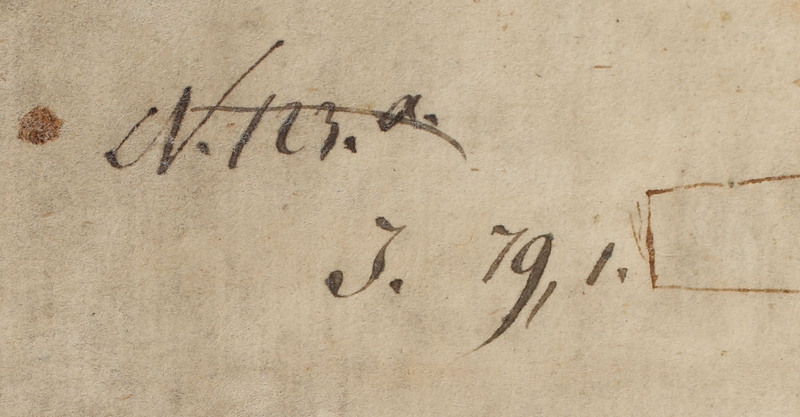 N. 123. a.
J. 79, 1.